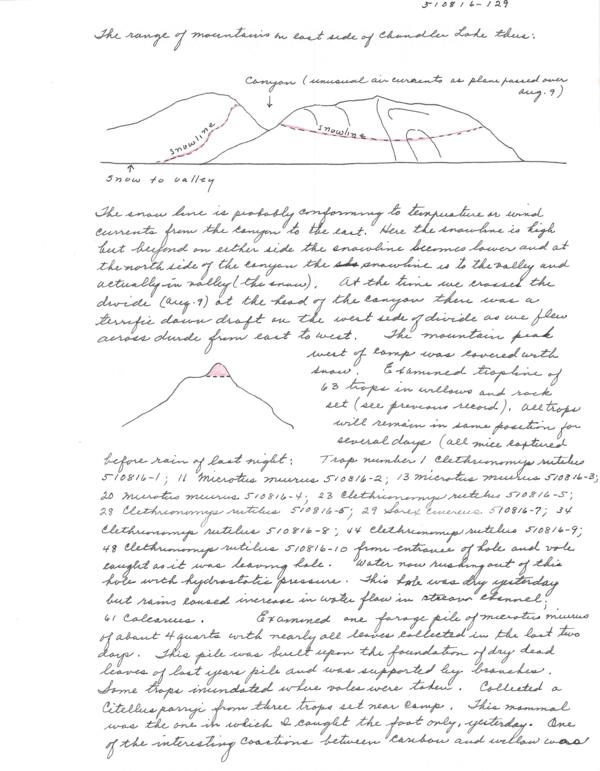 510816-129
The range of mountains on east side of Chandler Lake thus:
Canyon (unusual air currents as plane passed over
Aug. 9)
snowline
snowline
snow to valley
The snow line is probably conforming to temperature or wind
currents from the canyon to the east. Here the snowline is high
but beyond on either side the snowline becomes lower and at
the north side of the canyon the snowline is to the valley and
actually in valley (the snow). At the time we crossed the
divide (Aug. 9) at the head of the canyon there was a
terrific down draft on the west side of divide as we flew
across divide from east to west. The mountain peak
west of camp was covered with
snow. Examined trapline of
63 traps in willows and rock
set (see previous record). All traps
will remain in same position for
several days (all mice captured
before rain of last night: Trap number 1 Clethrionomys rutilus
510816-1; 11 Microtus miurus 510816-2; 13 microtus miurus 510816-3;
20 Microtus miurus 510816-4; 23 Clethrionomys rutilus 510816-5;
28 Clethrionomys rutilus 510816-6; 29 Sorex cinereus 510816-7; 34
Clethrionomys rutilus 510816-8; 44 Clethrionomys rutilus 510816-9;
48 Clethrionomys rutilus 510816-10 from entrance of hole and vole
caught as it was leaving hole. Water now rushing out of this
hole with hydrostatic pressure. This hole was dry yesterday
but rains caused increase in water flow in stream channel;
61 Calcarius. Examined one forage pile of microtus miurus
of about 4 quarts with nearly all leaves collected in the last two
days. This pile was built upon the foundation of dry dead
leaves of last years pile and was supported by branches.
Some traps inundated where voles were taken. Collected a
Citellus parryi from three traps set near camp. This mammal
was the one in which I caught the foot only, yesterday. One
of the interesting coactions between caribou and willow was